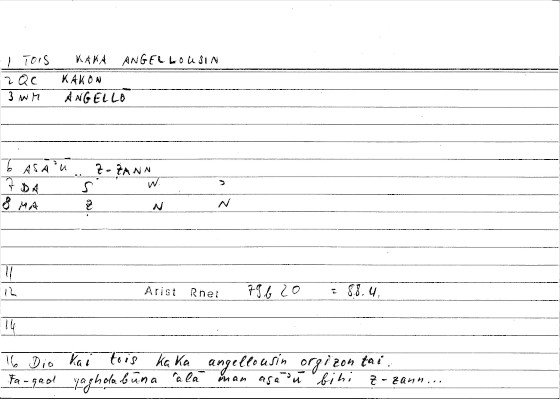 1 TOIS KAKA ANGELLOUSIN
2 QC KAKON
3 WM ANGELLŌ
6 ASĀʾŪ .. Ẓ-ẒANN
7 DA S W ʾ
8 MA Ẓ N N
11
12 Arist Rhet 79b20 = 88.4,
14
16 Dio kai tois kaka angellousin orgizontai.
Fa-qad yaghḍabūna ʿalā man asāʾū bihi ẓ-ẓann...